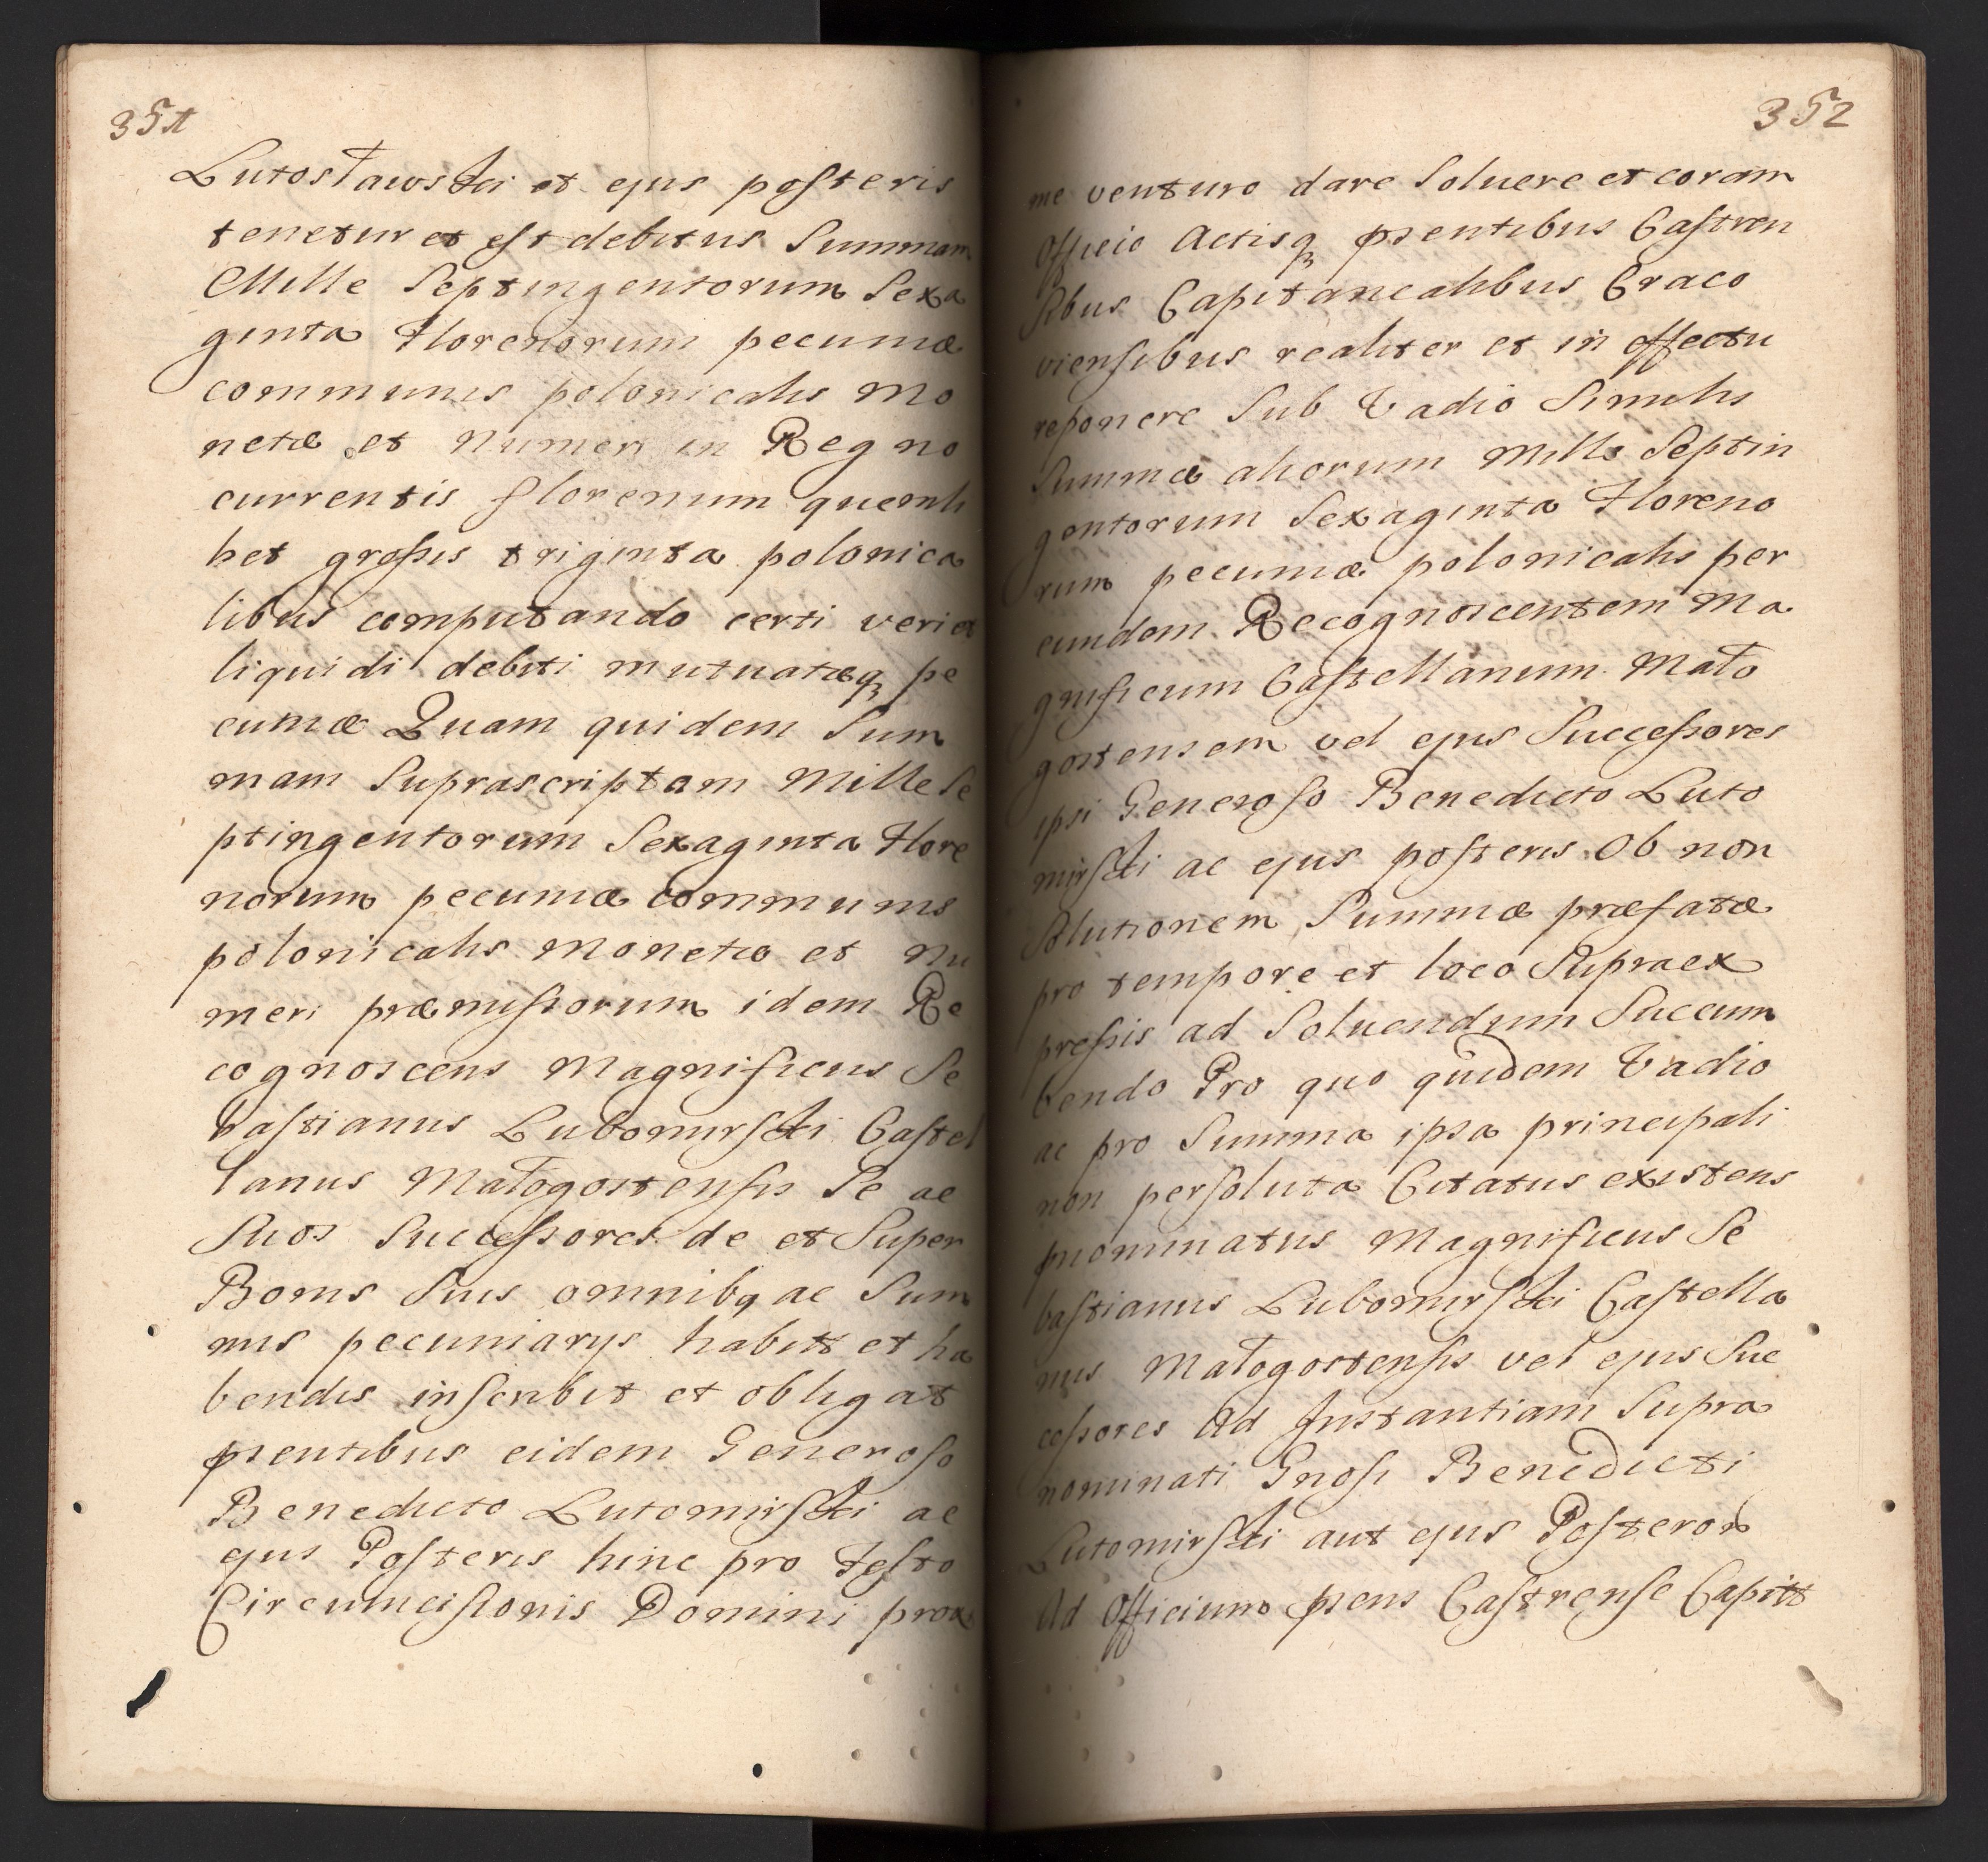 351
Lutosławski et ejus posteris
tenetur et est debitus Summam
Mille Septingentorum Sexa
ginta Florenorum pecuniæ
communis polonicalis mo
netæ et numeri in Regno
currentis florenum quemli
bet grossis triginta polonica
libus computando certi veri et
liquidi debiti mutuatæq pe
cuniæ Quam quidem Sum
mam Suprascriptam Mille Se
ptingentorum Sexaginta Flore
norum pecuniæ communis
polonicalis monetæ et nu
meri præmissorum idem Re
cognoscens Magnificus Se
bastianus Lubomirski Castel
lanus Małogostensis Se ac
Suos Successores de et Super
Bonis Suis omnibq ac Sum
mis pecuniarys habitt et ha
bendis inscribit et obligat
pntibus eidem Generoso
Benedicto Lutomirski ac
ejus Posteris hinc pro Festo
Circumcisionis Domini prox
352
me venturo dare Soluere et coram
Officio Actisq pntibus Castren
sibus Capitanealibus Craco
viensibus realiter et in effectu
reponere Sub Vadio Similis
Summæ aliorum Mille Septin
gentorum Sexaginta Floreno
rum pecuniæ polonicalis per
eundem Recognoscentem Ma
gnificum Castellanum Mało
gostensem vel ejus Successores
ipsi Generoso Benedicto Luto
mirski ac ejus posteris Ob non
Solutionem Summæ præfatæ
pro tempore et loco Supraex
pressis ad Soluendum Succum
bendo Pro quo quidem Vadio
ac pro Summa ipsa principali
non persoluta Citatus existens
pnominatus Magnificus Se
bastianus Lubomirski Castella
nus Małogostensis vel ejus Suc
cessores Ad Instantiam Supra
nominati Gnosi Benedicti
Lutomirski aut ejus Posteror
Ad Officium pns Castrense Capitt